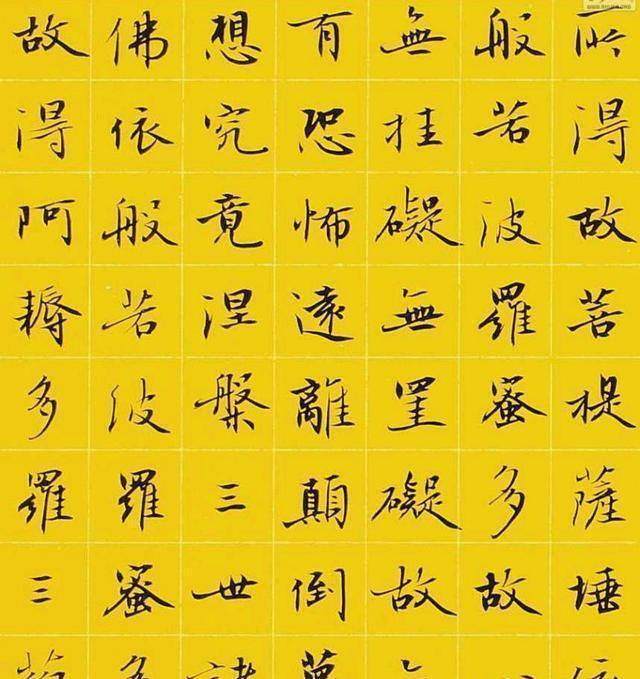 所得故菩提薩埵
般若波羅蜜多故
無挂礙無罣礙故
有恐怖遠離顛倒
想究竟涅槃三世諸
佛依般若波羅蜜多
故得阿耨多羅三